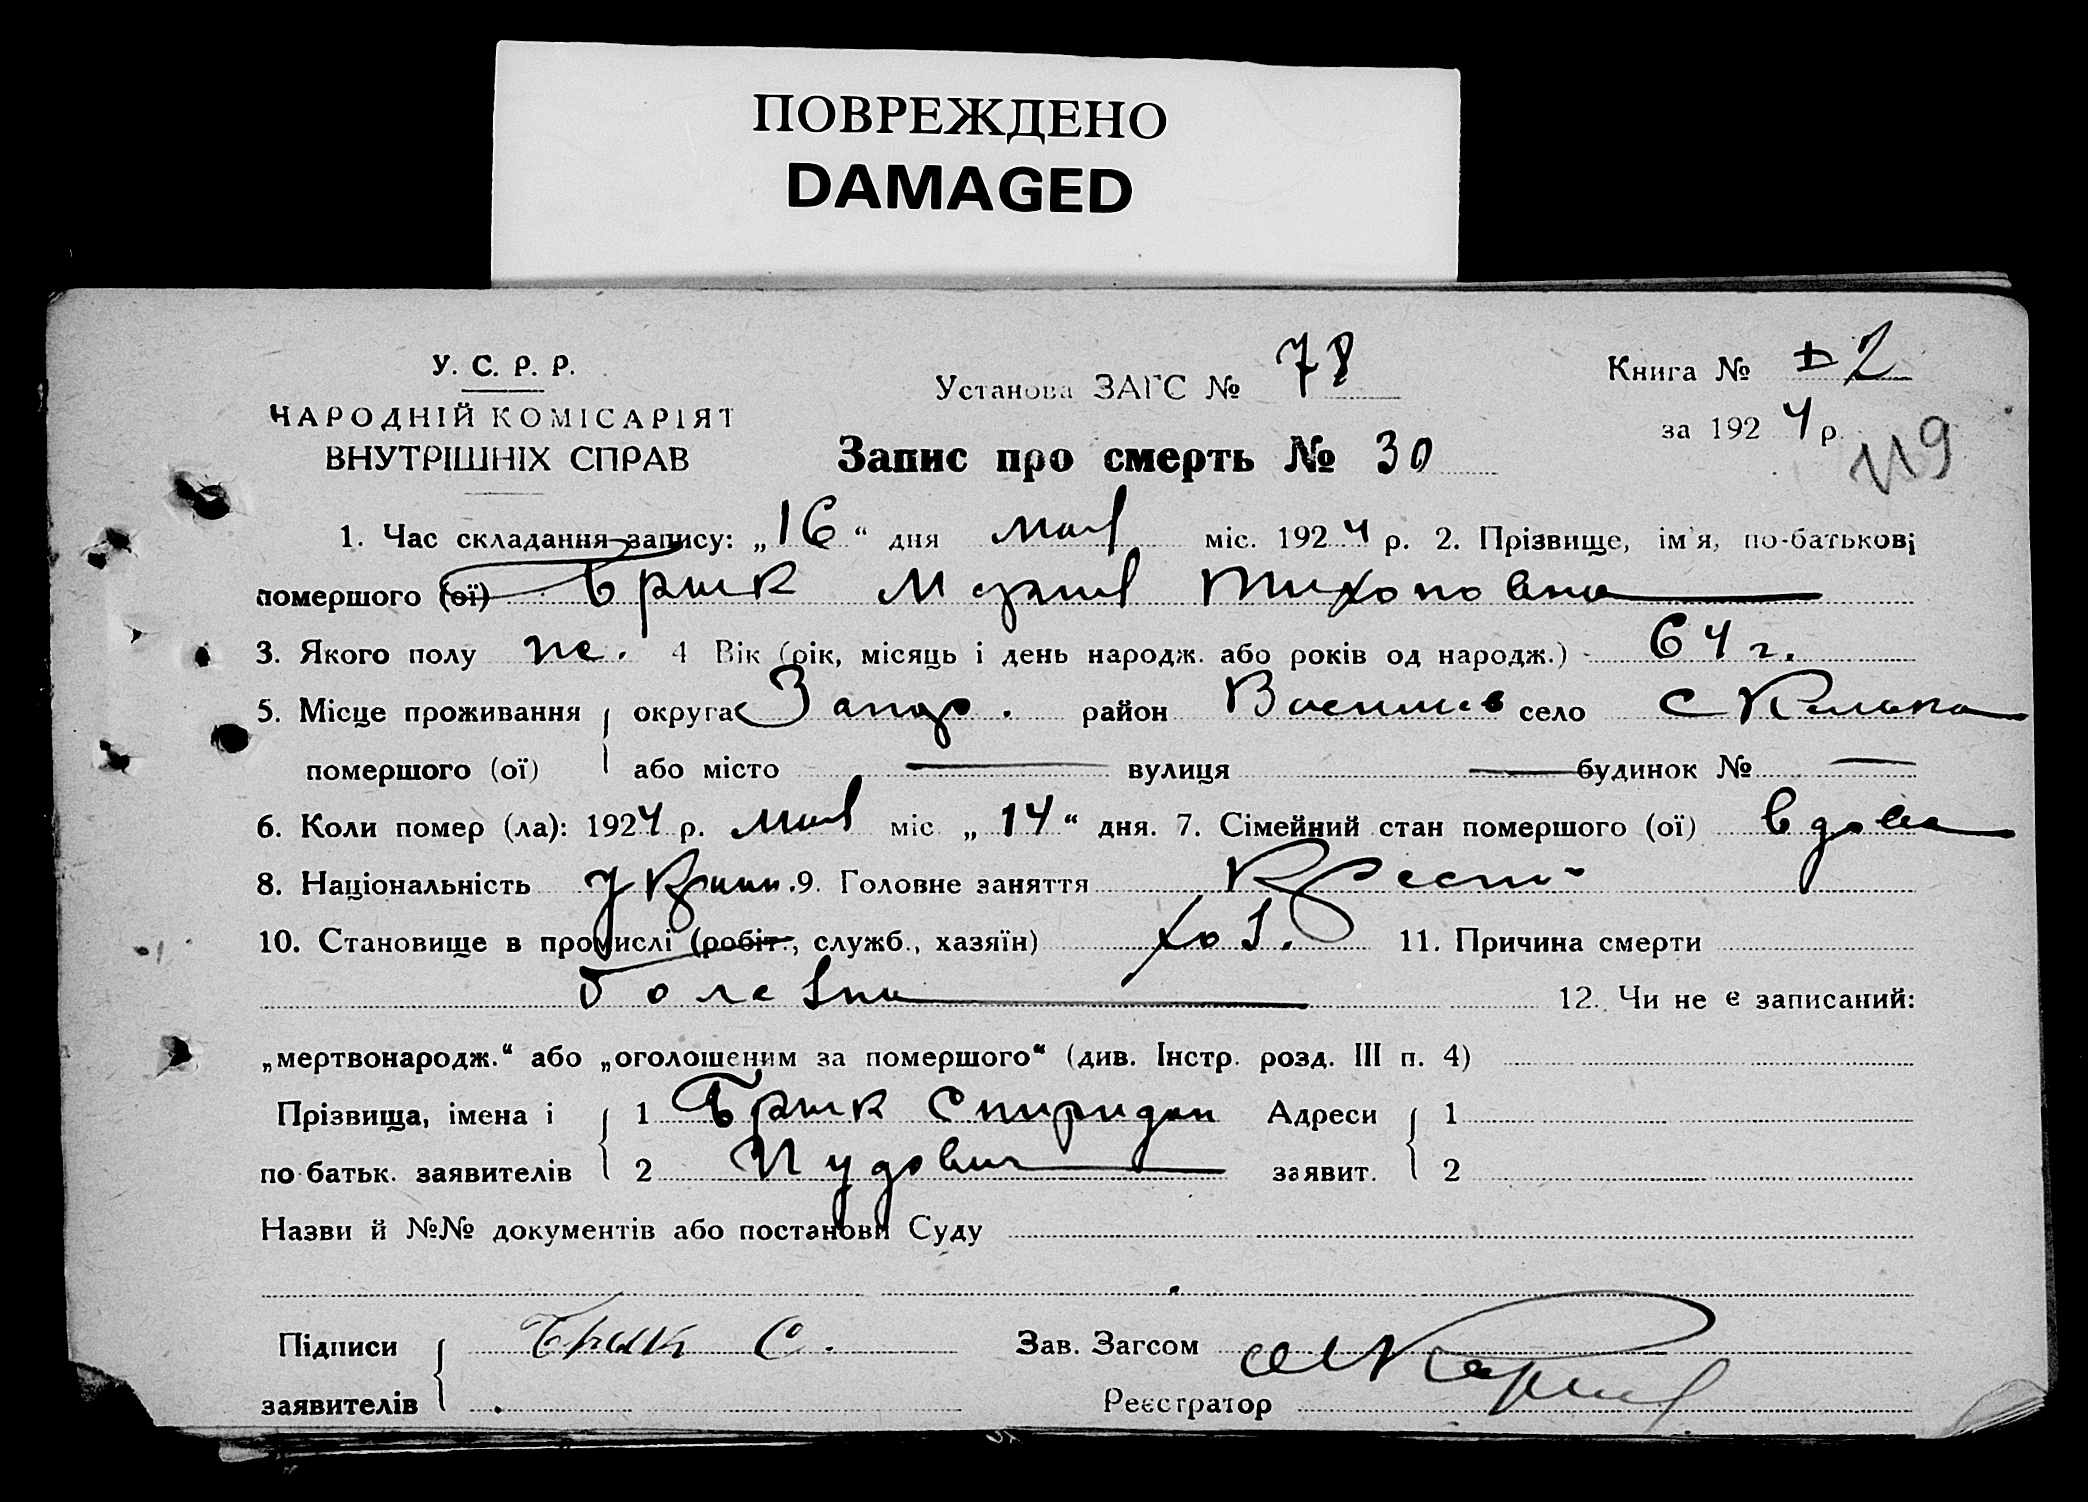 ПОВРЕЖДЕНО
DAMAGED
У. С. Р. Р.
НАРОДНІЙ КОМІСАРІЯТ
ВНУТРІШНІХ СПРАВ
Установа ЗАГС № 78
Книга № 2
за 1924 р.
119
Запис про смерть № 30
1. Час складання запису: „16“ дня мая міс. 1924 р. 2. Прізвище, ім'я, по-батькові
помершого (ої) Брик Мария Тихоновна
3. Якого полу же. 4 Вік (рік, місяць і день народж. або років од народж.) - 64 г.
5. Місце проживання округа Запор. район Василив село с
помершого (ої) або місто — вулиця — будинок № —
6. Коли помер (ла): 1924 р. мая міс „14“ дня. 7. Сімейний стан помершого (ої) вдова
8. Національність Украин. 9. Головне заняття Крест-
10. Становище в промислі (робіт., служб., хазяїн) хоз. 11. Причина смерти
болезни 12. Чи не є записаний:
„мертвонародж.“ або „оголошеним за помершого“ (див. Інстр. розд. III п. 4)
Прізвища, імена і 1 Брик Спиридон Адреси 1
по батьк. заявителів 2 Иудович заявит. 2
Назви й №№ документів або постанови Суду
Підписи Брик С. Зав. Загсом
заявителів Реєстратор